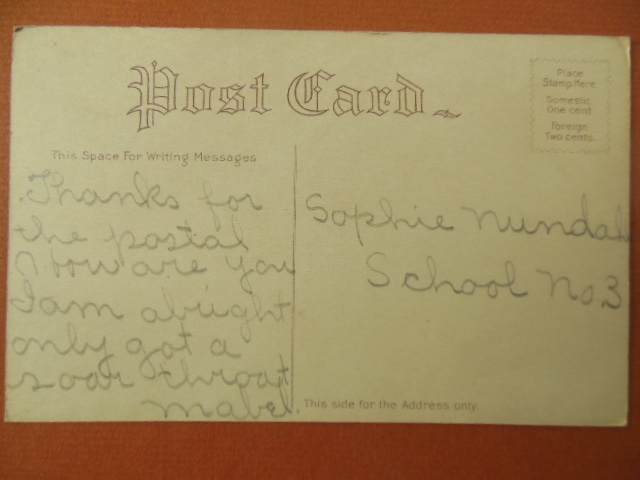 Post Card
Place
Stamp Here
Domestic
One cent
Foreign
Two cents.
This Space For Writing Messages
Thanks for
the postal
How are you
I am alright
only got a
soar throat
mabel.
Sophie Nundahl
School No. 3
This side for the Address only.